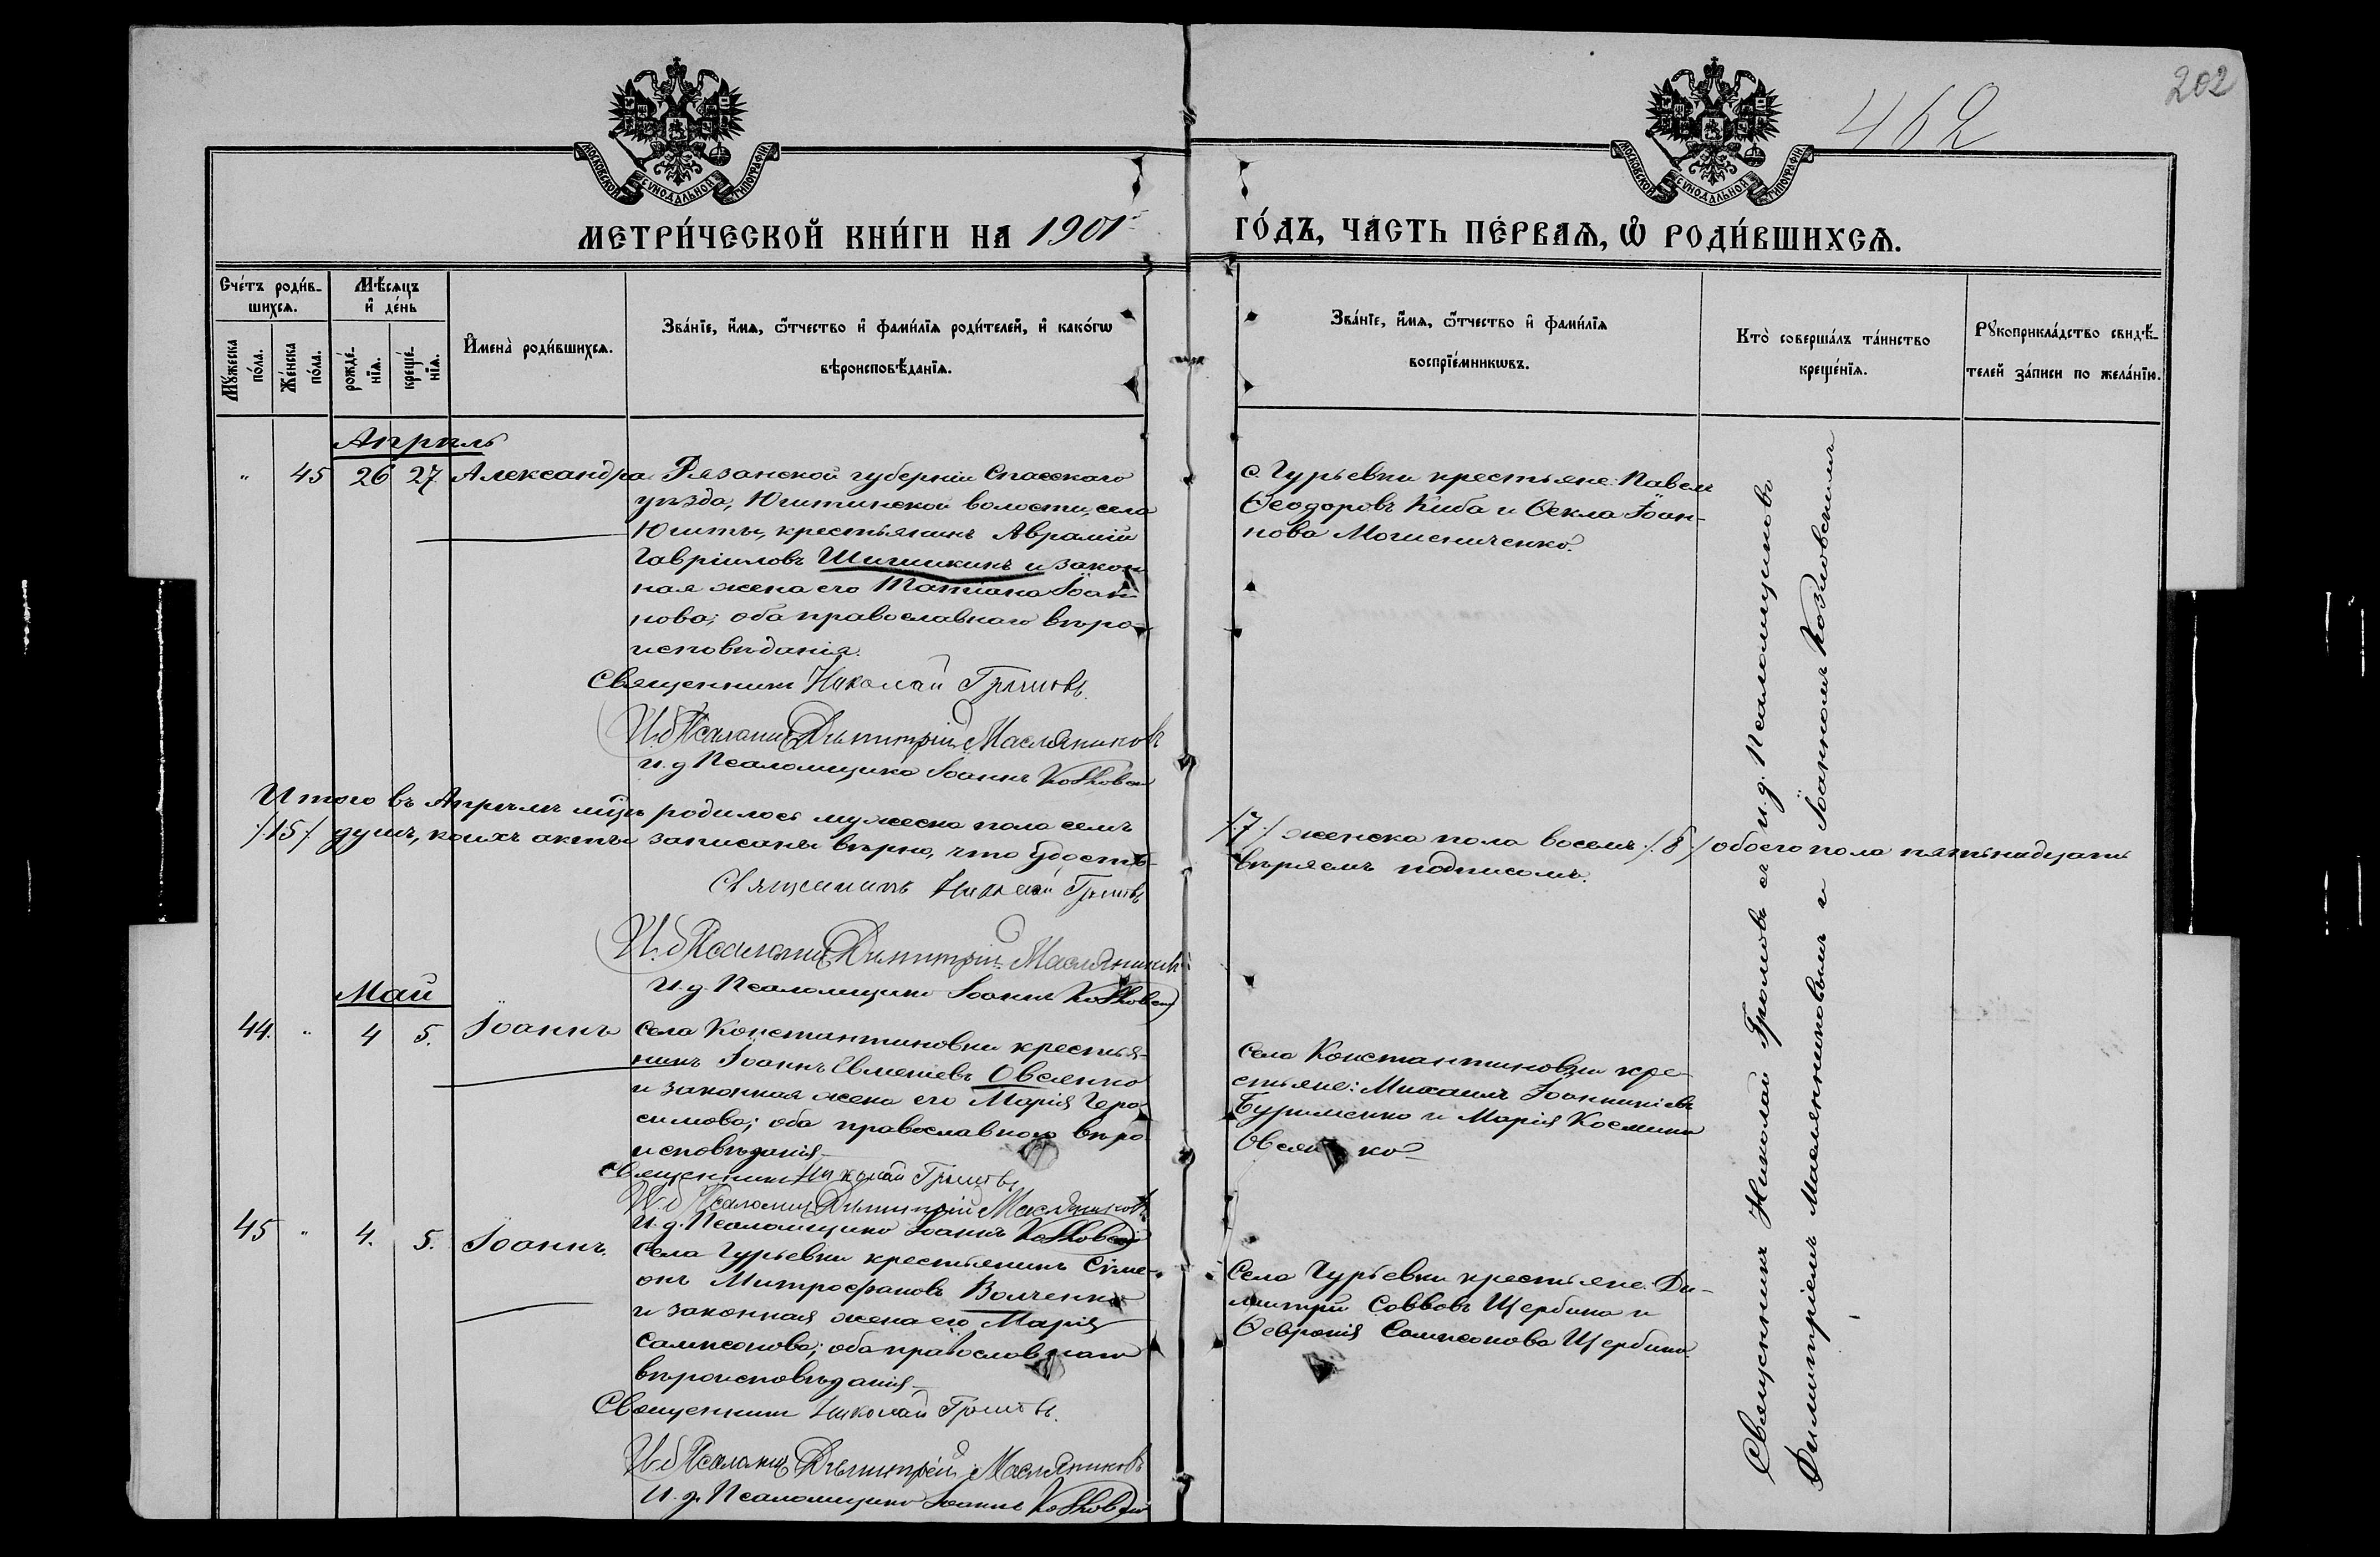 202
462
МОСКОВСКОЙ СѴНОДАЛЬНОЙ ТИПОГРАФІИ
МОСКОВСКОЙ СѴНОДАЛЬНОЙ ТИПОГРАФІИ
МЕТРИ́ЧЕСКОЙ КНИ́ГИ НА 1901 ГО́ДЪ, ЧА́СТЬ ПЕ́РВАѦ, Ѡ҆ РОДИ́ВШИХСѦ.
Сче́тъ роди́в-
шихсѧ.
Мꙋ́жеска
по́ла.
Же́нска
по́ла.
Мѣ́сяцъ
и҆ де́нь
рожде́-
нїѧ.
креще́-
нїѧ.
И҆мена̀ роди́вшихсѧ.
Зва́нїе, и҆́мѧ, ѻ҆́тчество и҆ фами́лїѧ роди́телей, и҆ како́гѡ
вѣроисповѣ́данїѧ.
Зва́нїе, и҆́мѧ, ѻ҆́тчество и҆ фами́лїѧ
воспрїе́мникѡвъ.
Кто̀ соверша́лъ та́инство
креще́нїѧ.
Рꙋкоприкла́дство свидѣ́-
телей за́писи по жела́нїю.
Апрѣль
" 45 26 27 Александра
Рязанской губерніи Спасскаго
уѣзда, Ижевской волости, села
крестьянинъ Аврамій
Гавріиловъ Шишкинъ и закон
ная жена его Татіана Іоан-
нова; оба православнаго вѣро-
исповѣданія.
Священникъ Николай Громовъ
И. д. Псаломщ. Димитрій Масляниковъ
И. д. Псаломщика Іоаннъ Козловскій
с. Гурьевки крестьяне: Павелъ
Ѳеодоровъ Киба и Ѳекла Іоан-
нова
Итого въ Апрѣлѣ мцѣ родилось мужеска пола семь /7/ женска пола восемь /8/ обоего пола пятьнадцать
/15/ душъ, коихъ акты записаны вѣрно, что удосто-вѣряемъ подписомъ.
Священникъ Николай Громовъ
И. д. Псаломщ. Димитрій Масляниковъ
И. д. Псаломщика Іоаннъ Козловскій
Май
44. " 4 5. Іоаннъ
Села Константиновки крестья-
нинъ Іоаннъ Евменіевъ Овсянко
и законная жена его Марія Гера-
симова; оба православнаго вѣро
исповѣданія
Священникъ Николай Громовъ
И. д. Псаломщ. Димитрій Масляниковъ
И. д. Псаломщика Іоаннъ Козловскій
Села Константиновки кре-
стьяне: Михаилъ Іоанникіевъ
Бурименко и Марія Космина
Овсянко
45 " 4. 5. Іоаннъ.
Села Гурьевки крестьянинъ Сѵме-
онъ Митрофановъ Волченко
и законная жена его Марія
Сампсонова; оба православнаго
вѣроисповѣданія
Священникъ Николай Громовъ.
И. д. Псаломщ. Димитрій Масляниковъ
И. д. Псаломщика Іоаннъ Козловскій
Села Гурьевки крестьяне: Ди-
митрій Саввовъ Щербина и
Ѳевронія Сампсонова Щербина.
Священникъ Николай Громовъ съ и. д. Псаломщиковъ
Димитріемъ Маслянниковымъ и Іоанномъ Козловскимъ